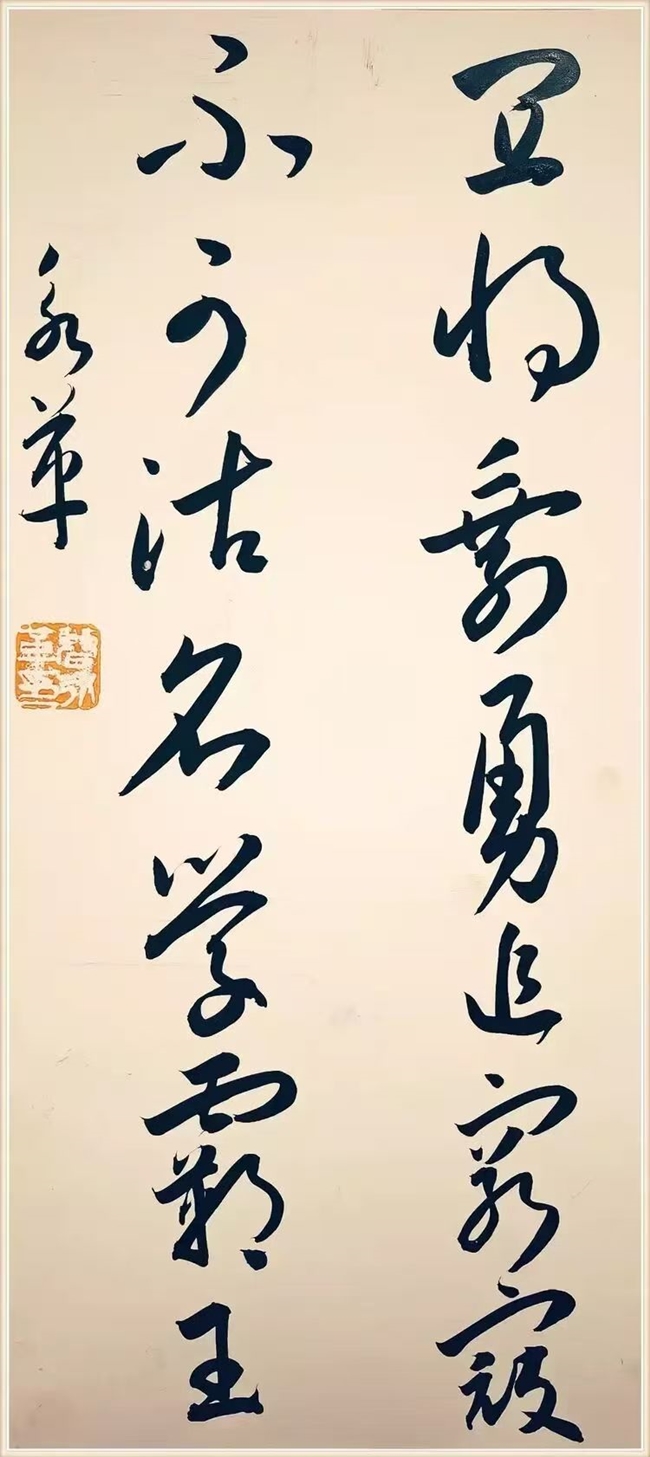 宜将剩勇追穷寇
不可沽名学霸王
永革